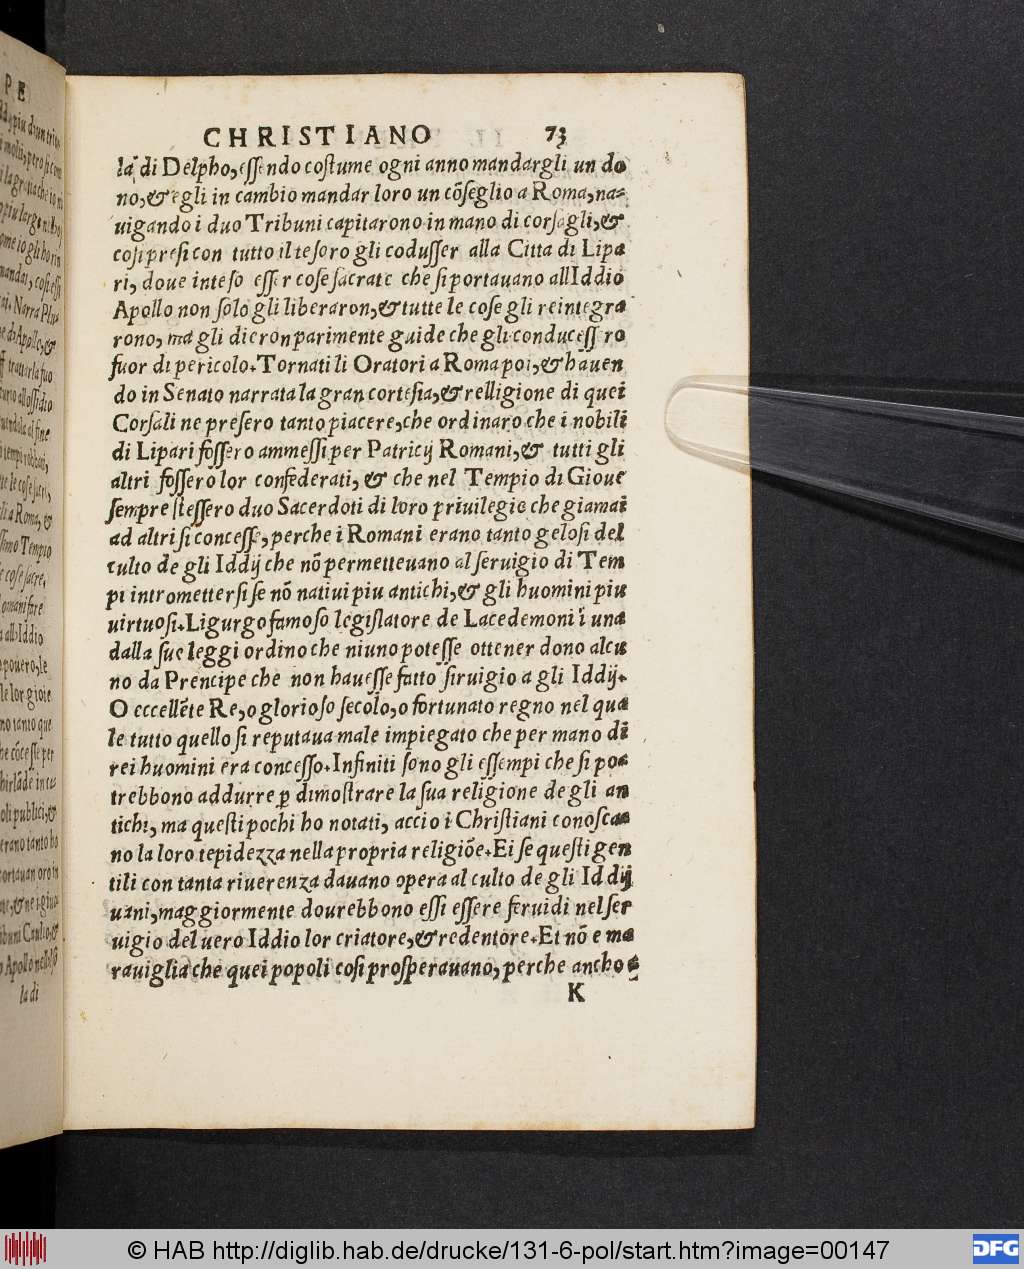 CHRISTIANO 73
la di Delpho, essendo costume ogni anno mandargli un do
no, & egli in cambio mandar loro un cõseglio a Roma, na-
uigando i duo Tribuni capitarono in mano di corsagli, &
cosi presi con tutto il tesoro gli codusser alla Citta di Lipa
ri, doue inteso esser cose sacrate che si portauano all Iddio
Apollo non solo gli liberaron, & tutte le cose gli reintegra
rono, ma gli dieron parimente guide che gli conducessero
fuor di pericolo. Tornati li Oratori a Roma poi, & hauen
do in Senato narrata la gran cortesia, & relligione di quei
Corsali ne presero tanto piacere, che ordinaro che i nobili
di Lipari fossero ammessi per Patricij Romani, & tutti gli
altri fossero lor confederati, & che nel Tempio di Gioue
sempre stessero duo Sacerdoti di loro priuilegio che giamai
ad altri si concesse, perche i Romani erano tanto gelosi del
culto de gli Iddij che nõ permetteuano al seruigio di Tem
pi intrometter si se nõ natiui piu antichi, & gli huomini piu
uirtuosi. Ligurgo famoso legislatore de Lacedemoni i una
dalla sue leggi ordino che niuno potesse ottener dono alcu
no da Prencipe che non hauesse fatto siruigio a gli Iddij.
O eccellẽte Re, o glorioso secolo, o fortunato regno nel qua
le tutto quello si reputaua male impiegato che per mano di
rei huomini era concesso. Infiniti sono gli essempi che si po-
trebbono addurre ꝑ dimostrare la sua religione de gli an
tichi, ma questi pochi ho notati, accio i Christiani conosca-
no la loro tepidezza nella propria religiõe. Ei se questi gen
tili con tanta riuerenza dauano opera al culto de gli Iddij
uani, maggiormente dourebbono essi essere feruidi nel ser
uigio del uero Iddio lor criatore, & redentore. Et nõ e ma
rauiglia che quei popoli cosi prosperauano, perche ancho-
K
la di
© HAB http://diglib.hab.de/drucke/131-6-pol/start.htm?image=00147
DFG